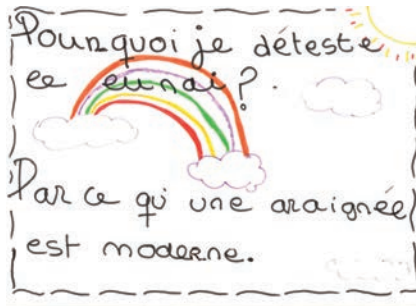 Pourquoi je déteste
?
Par ce qu' une araignée
est moderne.